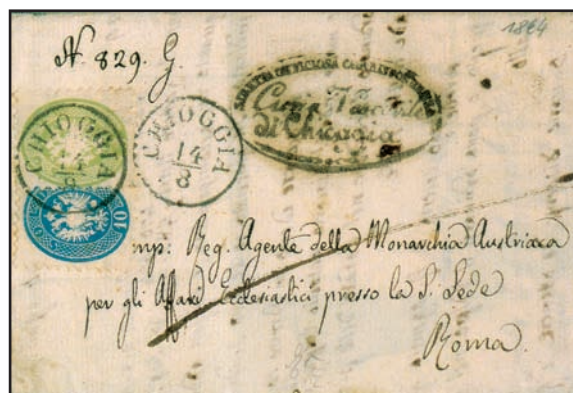 1864
N. 829. G.
CHIOGGIA
14
8
CHIOGGIA
14
8
Curia Vescovile
di Chioggia
10
SOLDI
Imp: Reg. Agente della Monarchia Austriaca
per gli Affari Ecclesiastici presso la S. Sede
Roma.